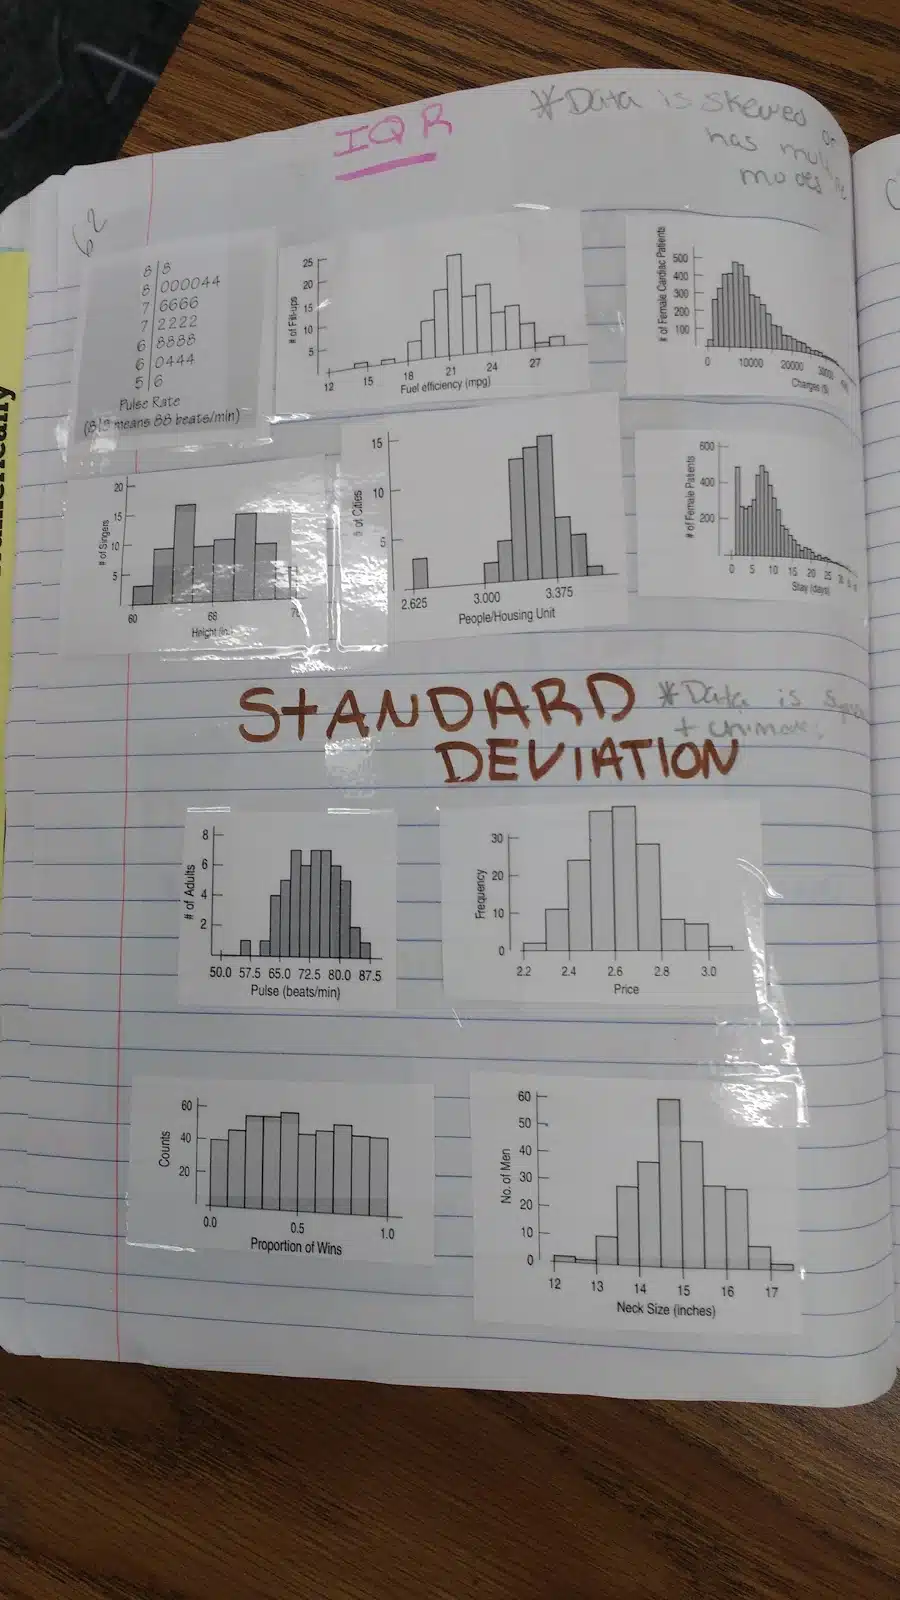 IQR
*Data is skewed or
has multiple
modes
62
8|8
8|000044
7|6666
7|2222
6|8888
6|0444
5|6
Pulse Rate
(8|8 means 88 beats/min)
# of Fill-ups
25
20
15
10
5
12 15 18 21 24 27
Fuel efficiency (mpg)
# of Female Cardiac Patients
500
400
300
200
100
0 10000 20000 30000
Charges ($)
# of Singers
20
15
10
5
60 66
Height (in.
# of Cities
15
10
5
2.625 3.000 3.375
People/Housing Unit
# of Female Patients
600
400
200
0 5 10 15 20 25
Stay (days)
STANDARD
DEVIATION
*Data is
+
# of Adults
8
6
4
2
50.0 57.5 65.0 72.5 80.0 87.5
Pulse (beats/min)
Frequency
30
20
10
0
2.2 2.4 2.6 2.8 3.0
Price
Counts
60
40
20
0.0 0.5 1.0
Proportion of Wins
No. of Men
60
50
40
30
20
10
0
12 13 14 15 16 17
Neck Size (inches)